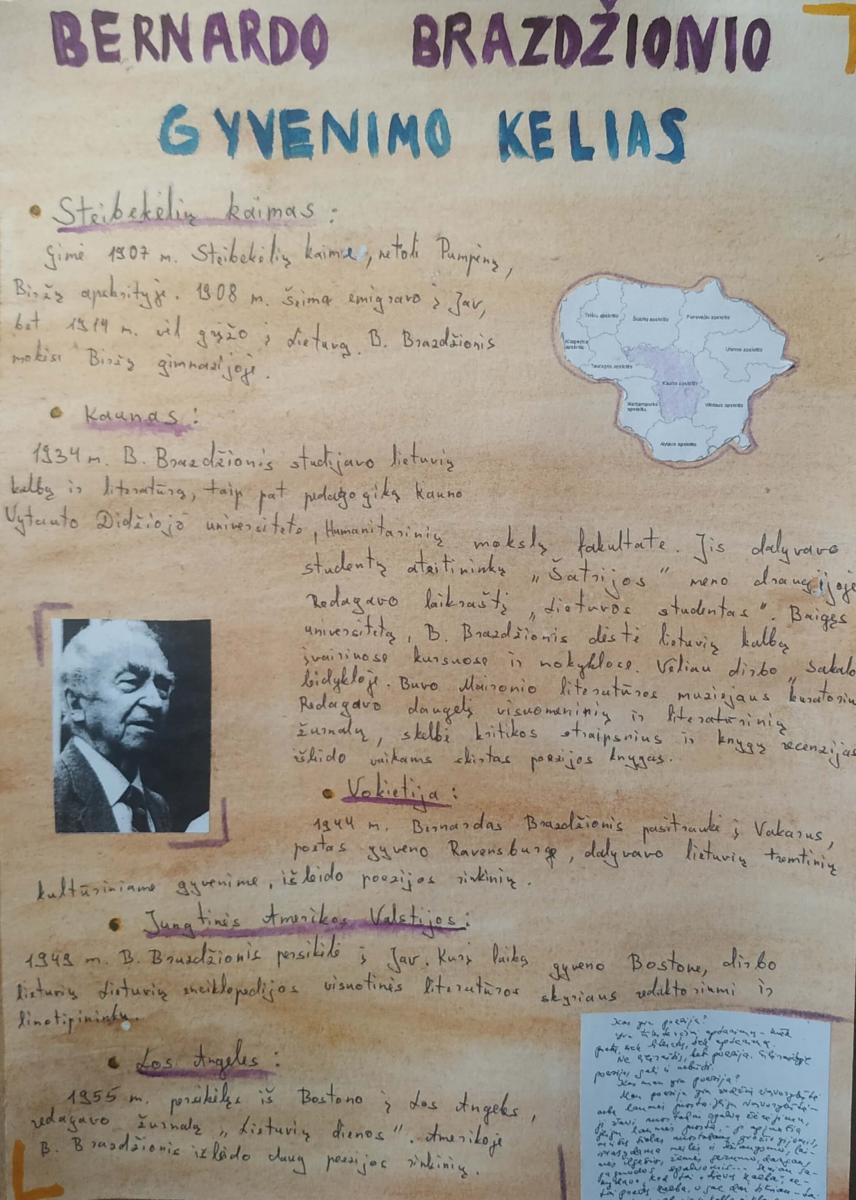 BERNARDO BRAZDŽIONIO
GYVENIMO KELIAS
Steibekėlių kaimas:
Gimė 1907 m. Steibekėlių kaime, netoli Pumpėnų,
Biržų apskrityje. 1908 m. šeima emigravo į Jav,
bet 1914 m. vėl grįžo į Lietuvą. B. Brazdžionis
mokėsi Biržų gimnazijoje.
Telšių apskritis
Šiaulių apskritis
Panevėžio apskritis
Klaipėdos apskritis
Tauragės apskritis
Utenos apskritis
Kauno apskritis
Marijampolės apskritis
Vilniaus apskritis
Alytaus apskritis
Kaunas:
1934 m. B. Brazdžionis studijavo lietuvių
kalbą ir literatūrą, taip pat pedagogiką Kauno
Vytauto Didžiojo universiteto, Humanitarinių mokslų fakultate. Jis dalyvavo
studentų ateitininkų „Šatrijos" meno draugijoje
Redagavo laikraštį „Lietuvos studentas". Baigęs
universitetą, B. Brazdžionis dėstė lietuvių kalbą
įvairinose kursuose ir mokyklose. Vėliau dirbo „Sakalo
leidykloje. Buvo Maironio literatūros muziejaus kuratoriu
Redagavo daugelį visuomeninių ir literatūrinių
žurnalų, skelbė kritikos straipsnius ir knygų recenzijas
išleido vaikams skirtas poezijos knygas.
Vokietija:
1944 m. Bernardas Brazdžionis pasitraukė į Vakarus,
poetas gyveno Ravensburge, dalyvavo lietuvių tremtinių
kultūriniame gyvenime, išleido poezijos rinkinių.
Jungtinės Amerikos Valstijos:
1949 m. B. Brazdžionis persikėlė į Jav. Kurį laiką gyveno Bostone, dirbo
lietuvių Lietuvių enciklopedijos visuotinės literatūros skyriaus redaktoriumi ir
linotipininku.
Los Angeles:
1955 m. persikėlęs iš Bostono į Los Angeles,
redagavo žurnalą „Lietuvių dienos". Amerikoje
B. Brazdžionis išleido daug poezijos rinkinių.
Kas yra poezija?
Kas man yra poezija?